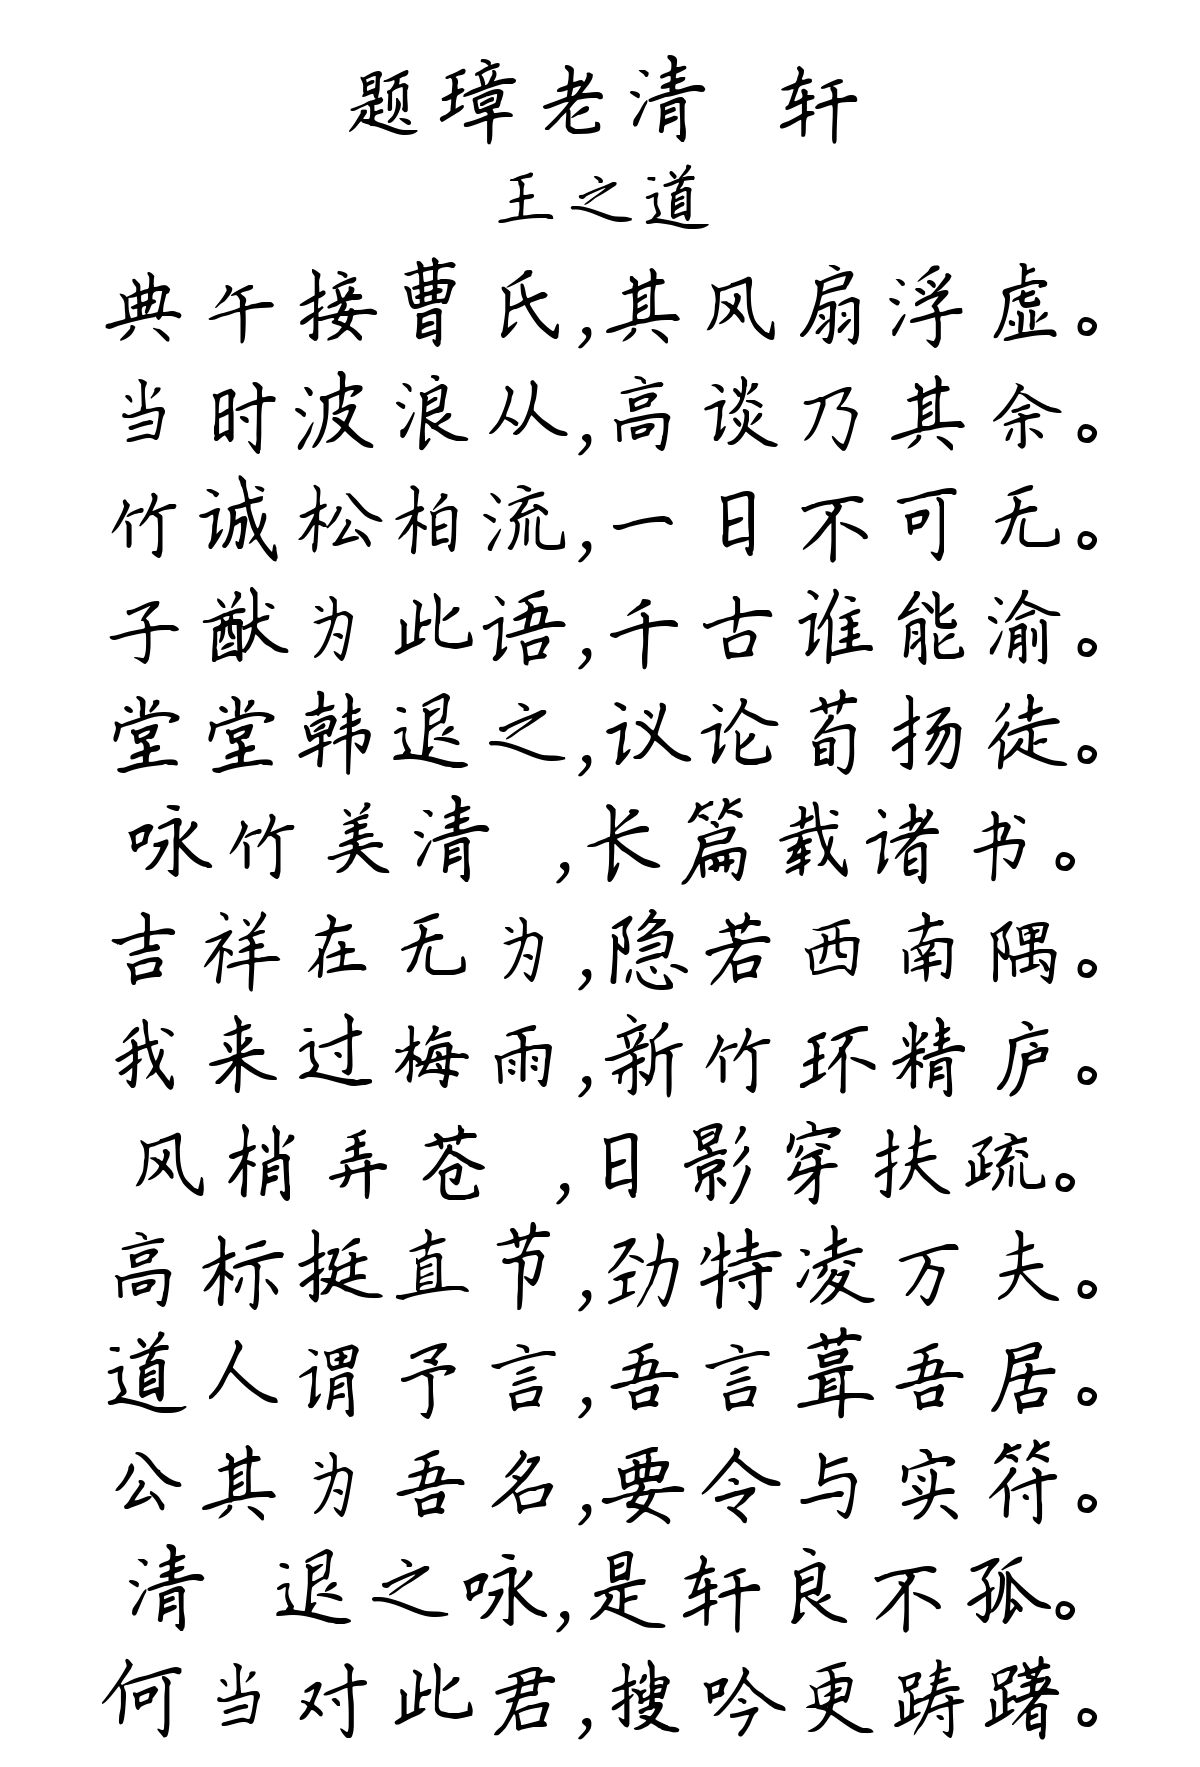 题璋老清 轩
王之道
典午接曹氏,其风扇浮虚。
当时波浪从,高谈乃其余。
竹诚松柏流,一日不可无。
子猷为此语,千古谁能渝。
堂堂韩退之,议论荀扬徒。
咏竹美清 ,长篇载诸书。
吉祥在无为,隐若西南隅。
我来过梅雨,新竹环精庐。
风梢弄苍 ,日影穿扶疏。
高标挺直节,劲特凌万夫。
道人谓予言,吾言葺吾居。
公其为吾名,要令与实符。
清 退之咏,是轩良不孤。
何当对此君,搜吟更踌躇。